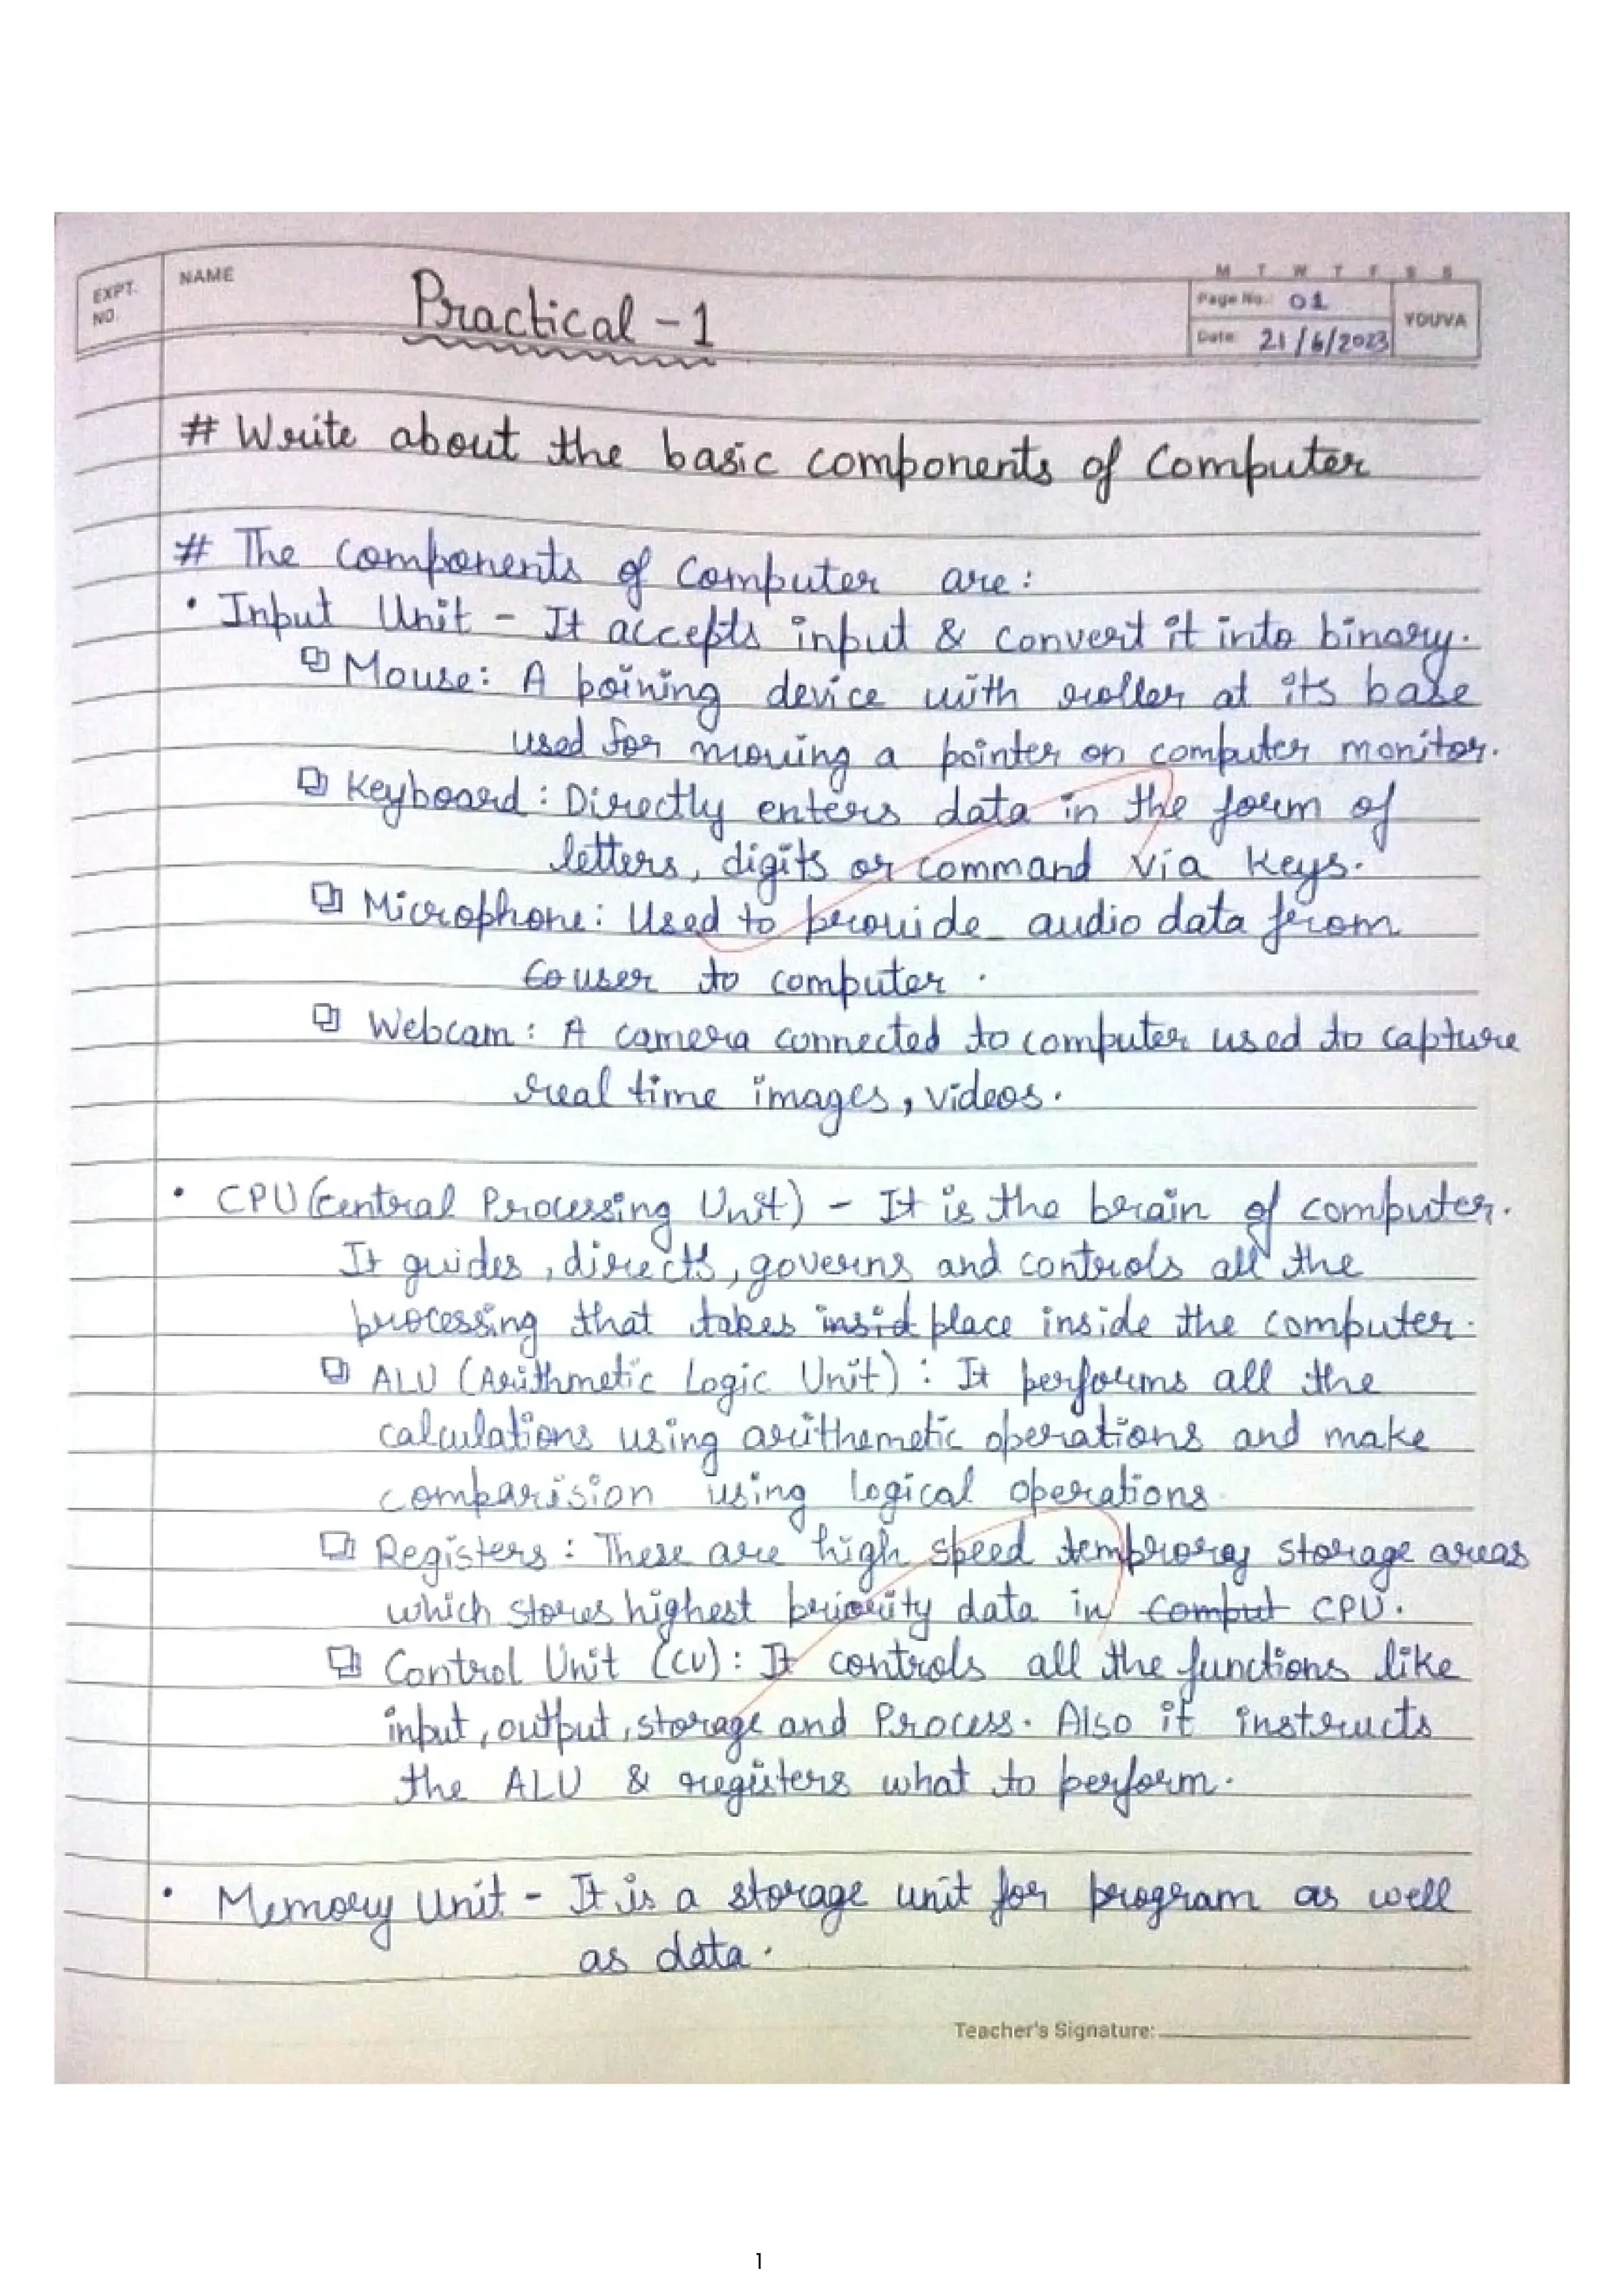 EXPT. NO.
NAME
Practical - 1
M T W T F S S
Page No.: 01
Date: 21/6/2023
YOUVA
# Write about the basic components of Computer
# The components of Computer are:
• Input Unit - It accepts input & convert it into binary.
Mouse: A poining device with roller at its base
used for moving a pointer on computer monitor.
Keyboard: Directly enters data in the form of
letters, digits or command via keys.
Microphone: Used to provide audio data from
to user to computer.
Webcam: A camera connected to computer used to capture
real time images, videos.
• CPU (Central Processing Unit) - It is the brain of computer.
It guides, directs, governs and controls all the
processing that takes insid place inside the computer.
ALU (Arithmetic Logic Unit) : It performs all the
calculations using arithemetic operations and make
comparision using logical operations.
Registers : These are high speed temprory storage areas
which stores highest priority data in Comput CPU.
Control Unit (CU): It controls all the functions like
input, output, storage and Process. Also it instructs
the ALU & registers what to perform.
• Memory Unit - It is a storage unit for program as well
as data.
Teacher's Signature:
1